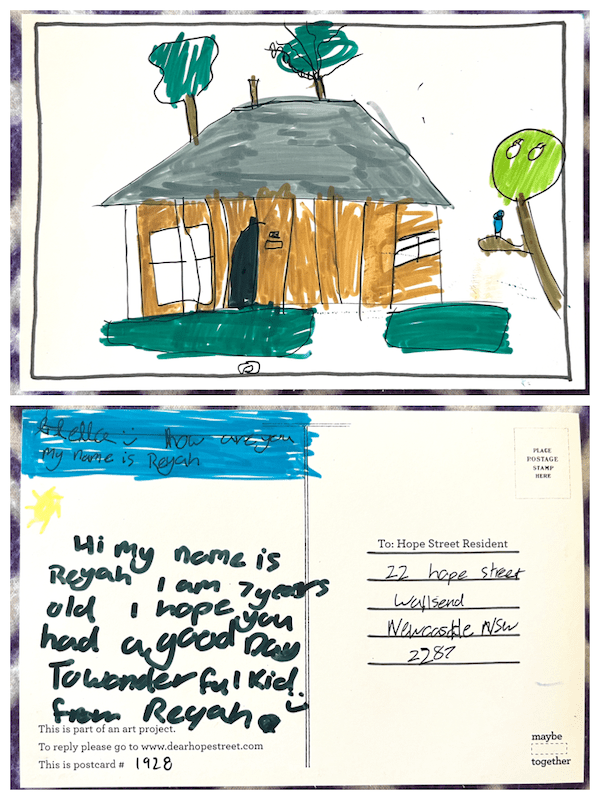 Hello :) How are you
my name is Reyah
Hi my name is
Reyah I am 7 years
old I hope you
had a good Day
To wonderful Kid
from Reyah
This is part of an art project.
To reply please go to www.dearhopestreet.com
This is postcard # 1928
PLACE
POSTAGE
STAMP
HERE
To: Hope Street Resident
22 hope street
Wallsend
Newcastle NSW
2287
maybe
together